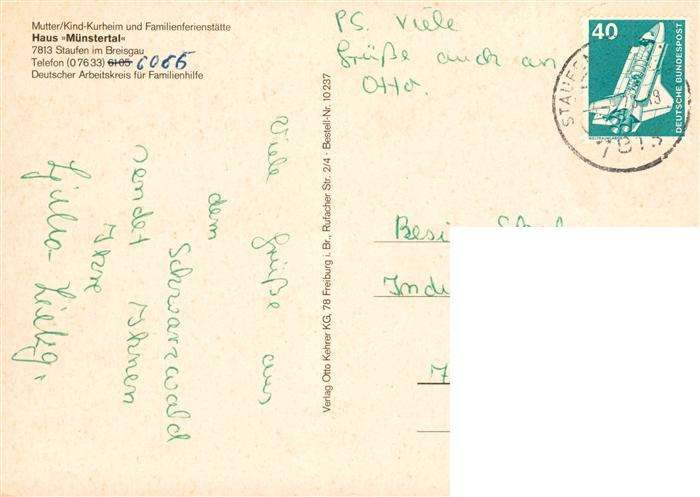 Mutter/Kind-Kurheim und Familienferienstätte
Haus »Münstertal«
7813 Staufen im Breisgau
Telefon (0 76 33) 6105 6066
Deutscher Arbeitskreis für Familienhilfe
PS. Viele
Grüße auch an
Otto.
40
DEUTSCHE BUNDESPOST
7813
Viele Grüße aus
dem
Schwarzwald
sendet Ihnen
Ihre
Verlag Otto Kehrer KG, 78 Freiburg i. Br., Rufacher Str. 2/4 · Bestell-Nr. 10 237
7